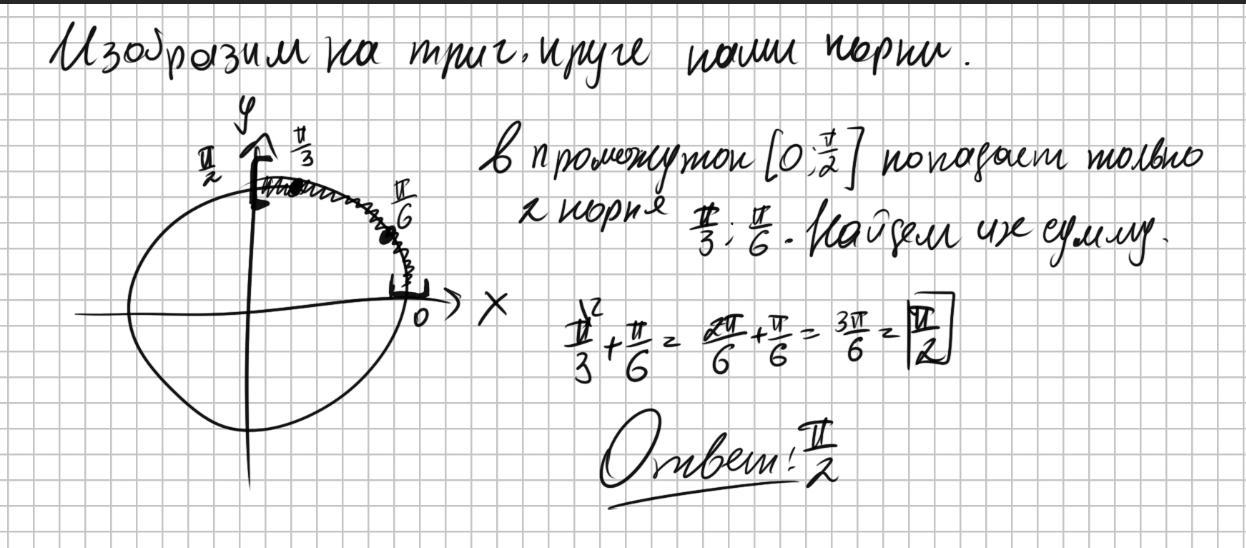 Изобразим на триг. круге наши корни.
y
π/2
π/3
π/6
0
X
В промежуток [0; π/2] попадает только
2 корня π/3; π/6. Найдем их сумму.
π/3 \2 + π/6 = 2π/6 + π/6 = 3π/6 = π/2
Ответ: π/2